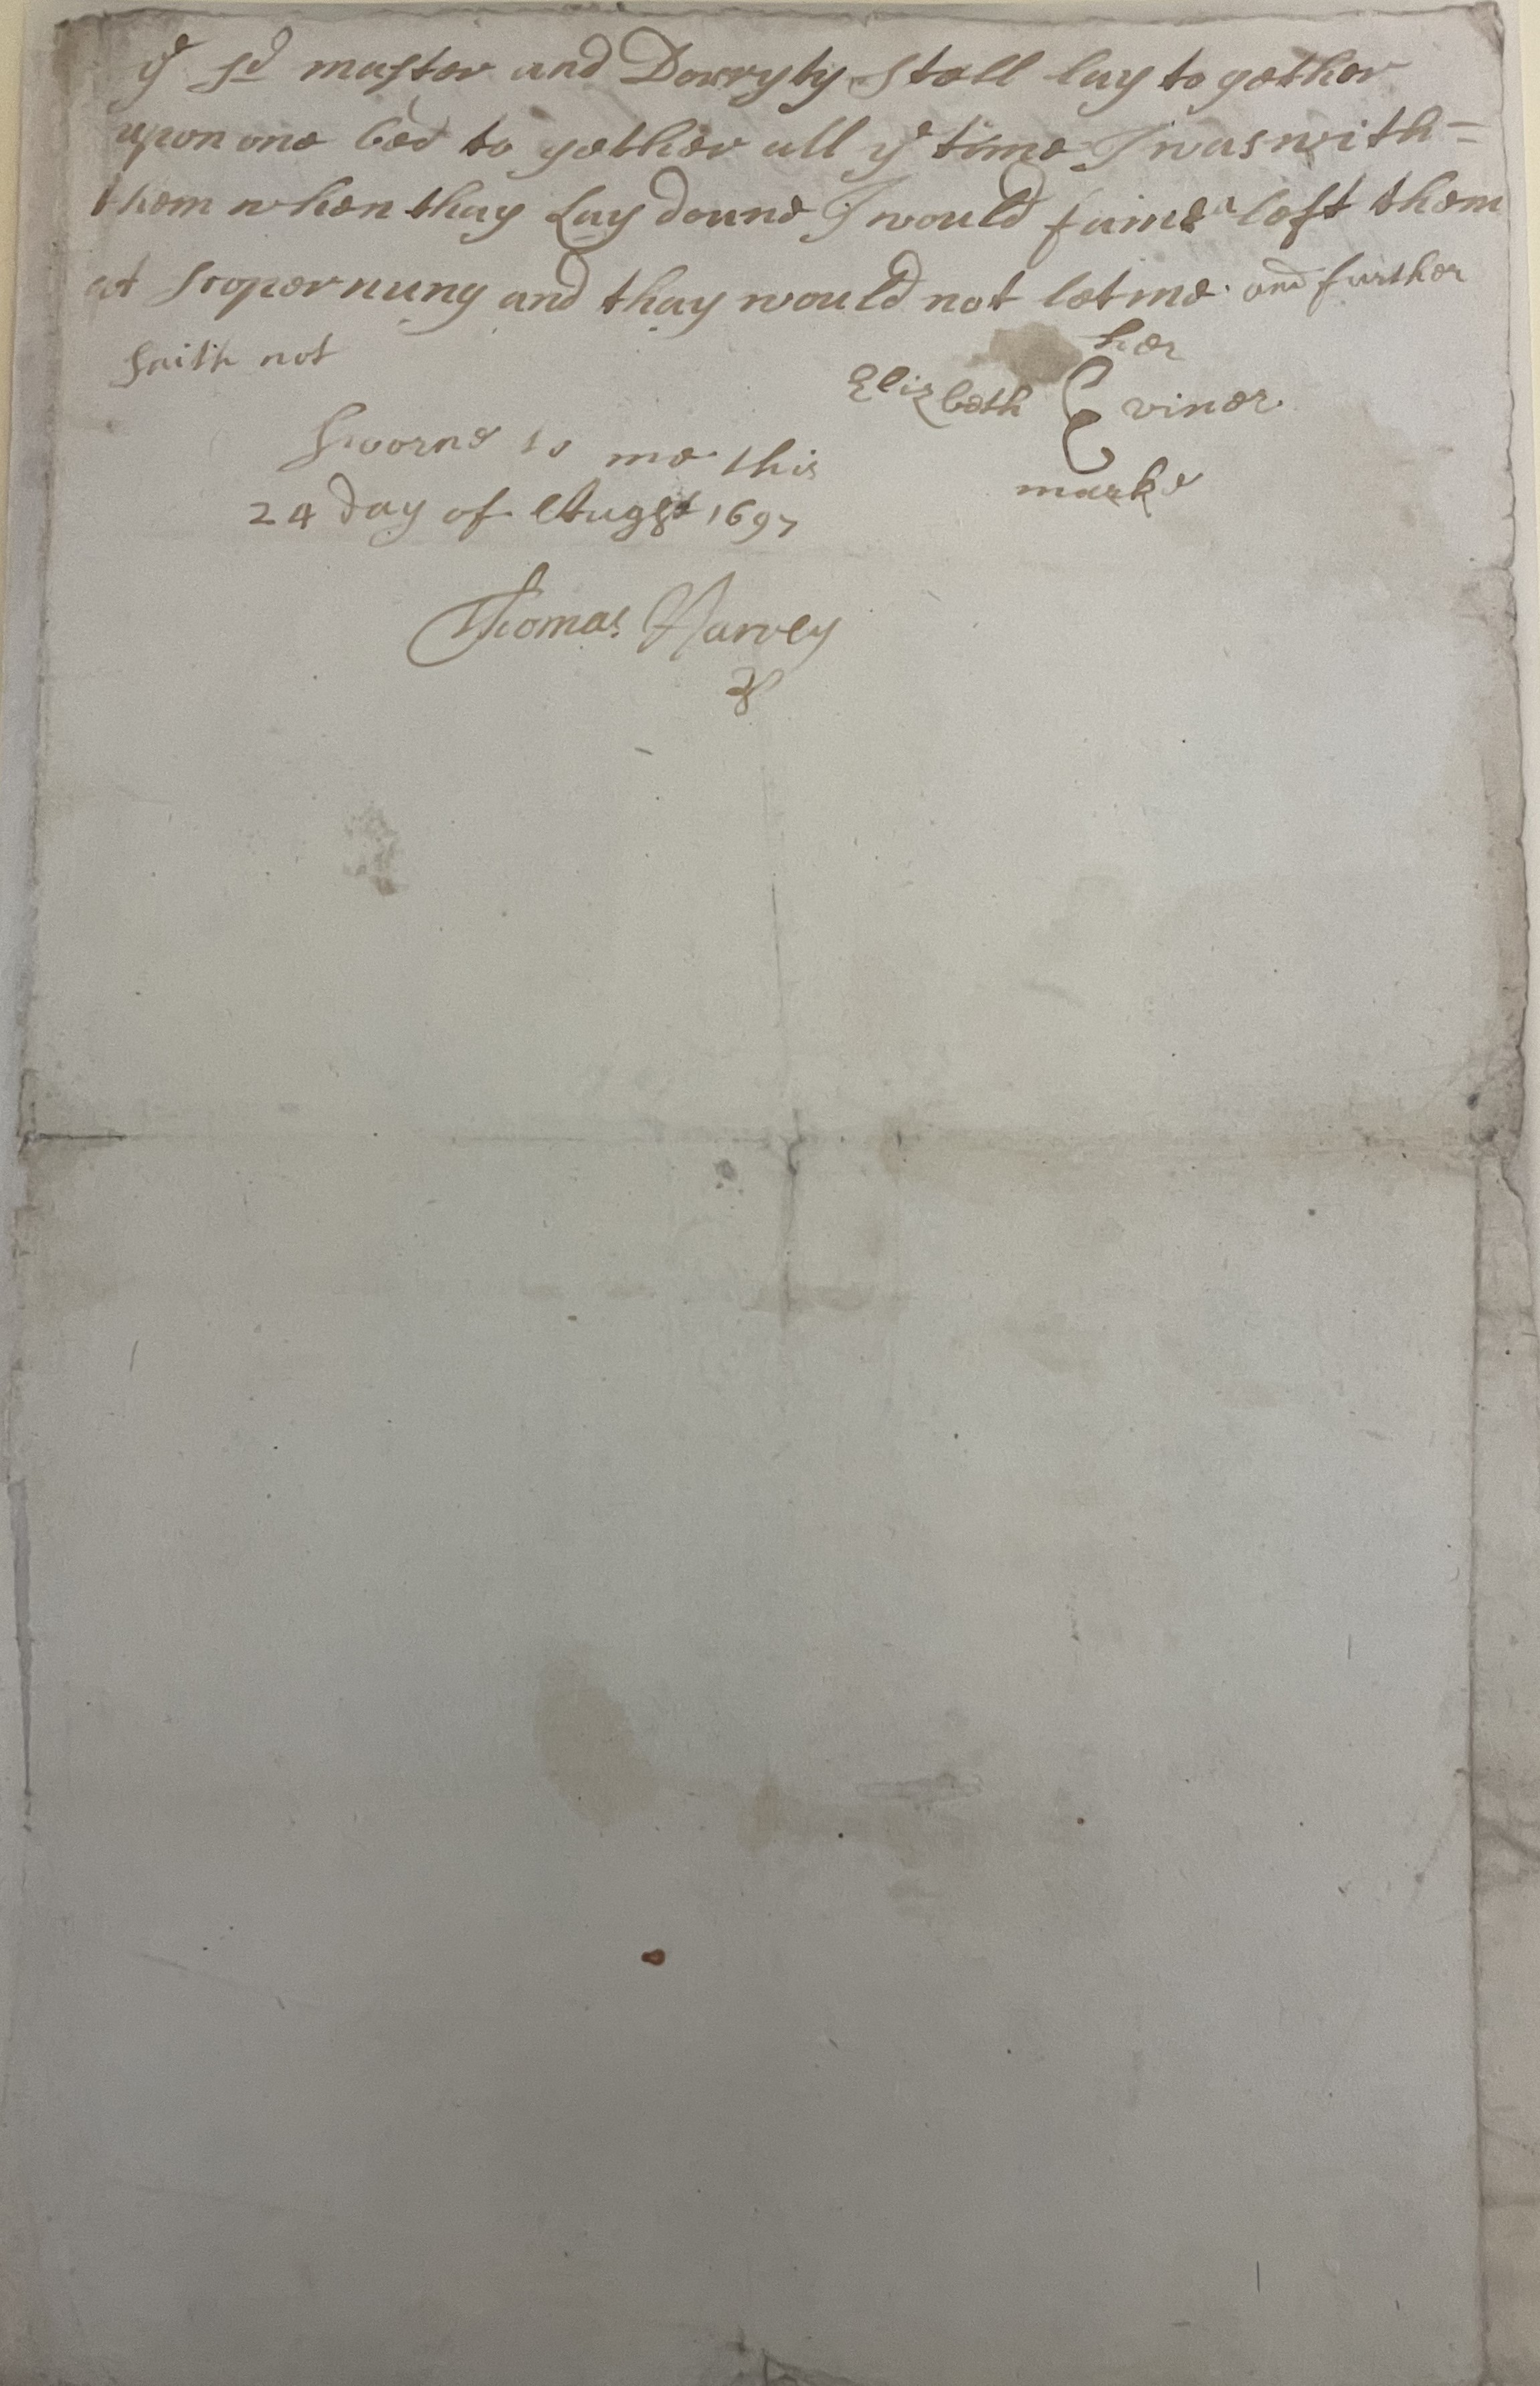 ye sd master and Dorryty Stall lay to gether
upon one bed to gether all ye time I was with=
them when thay Lay doune I would faine a left them
at Scopernung and thay would not let me and further
saith not
her
Elizbeth E viner
marke
Sworne to me this
24 day of Augst 1697
Thomas Harvey